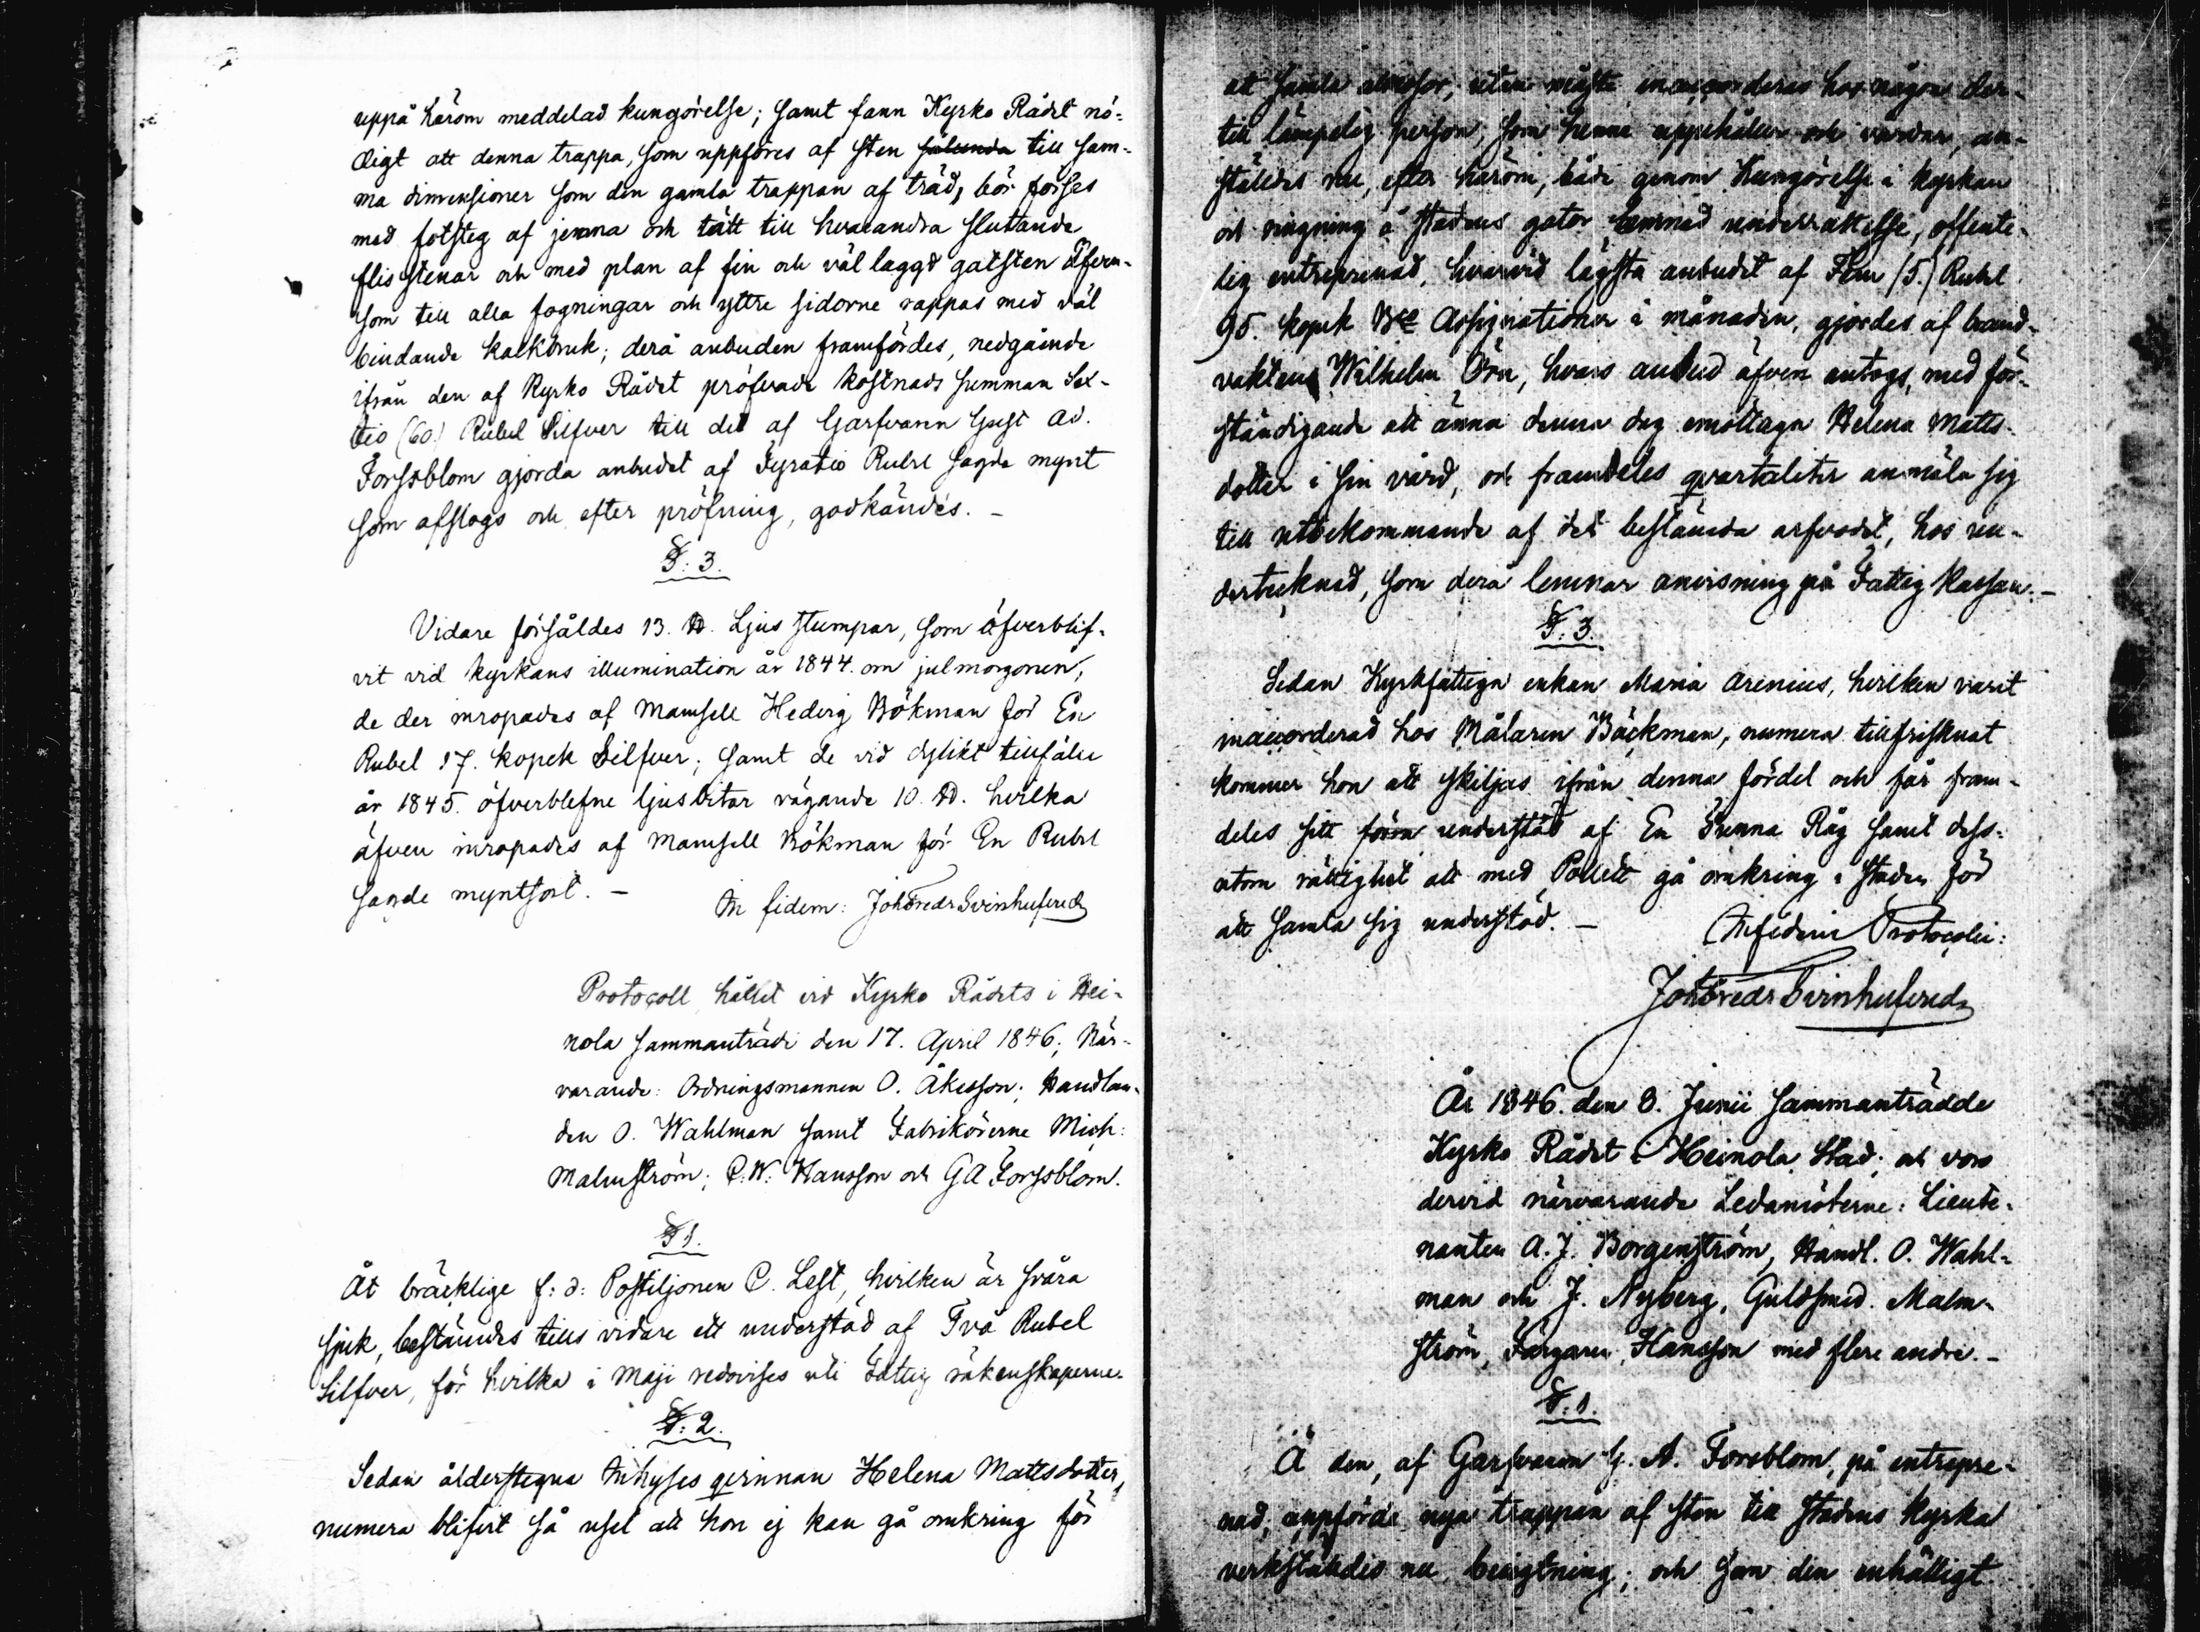 uppå härom meddelad kungörelse; samt fann Kyrko Rådet nö-
digt att denna trappa, som uppföres af sten sålunda till sam-
ma dimensioner som den gamla trappan af träd, bör förses
med fotsteg af jemna och tätt till hvarandra slutande
flisstenar och med plan af fin och väl laggd gatsten äfven-
som till alla fogningar och yttre sidorne rappas med väl
bindande kalkbruk; derå anbuden framfördes, nedgående
ifrån den af Kyrko Rådet pröfvade kostnads summan Sex-
tio (60.) Rubel Silfver till det af Garfvaren Gust Ad.
Forssblom gjorda anbudet af Fyratio Rubel sagde mynt
som afslogs och efter pröfning, godkändes. –
§: 3.
Vidare försåldes 13. ℔. Ljus stumpar, som öfverblif-
vit vid kyrkans illumination år 1844. om julmorgonen,
de der inropades af Mamsell Hedvig Bökman för En
Rubel 17. kopek Silfver; samt de vid dylikt tillfälle
år 1845. öfverblefne ljusbitar vägande 10 ℔. hvilka
äfven inropades af Mamsell Bökman för En Rubel
sagde myntsort. –
In fidem: Joh Fredr Svinhufvud
Protocoll hållet vid Kyrko Rådets i Hei-
nola sammanträde den 17. April 1846; När-
varande: Ordningsmannen O. Åkesson; Handlan-
den O. Wahlman samt Fabrikörerne Mich:
Malmström; C.W. Hansson och G A Forssblom.
§ 1.
Åt bräcklige f: d: Postiljonen C. Lest, hvilken är svåra
sjuk, bestämdes tills vidare ett understöd af Två Rubel
Silfver, för hvilka i Maji redovises uti Fattig räkenskaperne.
§: 2.
Sedan ålderstegna Inhyses qvinnan Helena Mattsdotter,
numera blifvit så usel att hon ej kan gå omkring för
att samla almosor, utan måste inaccorderas hos någon der-
till lämpelig person, som henne uppehåller och vårdar, an-
ställdes nu, efter härom, både genom Kungörelse i kyrkan
och ringning å stadens gator lemnad underrättelse, offente-
lig entreprenad, hvarvid lägsta anbudet af Fem (5.) Rubel
95. kopek Bco Assignationer i månaden, gjordes af brand-
vakten Wilhelm Örn, hvars anbud äfven antogs, med för-
ständigande att ännu denna dag emottaga Helena Matts-
dotter i sin vård, och framdeles qvartaliter anmäla sig
till utbekommande af det bestämda arfvodet, hos un-
dertecknad, som derå lemnar anvisning på Fattig Kassan. –
§: 3.
Sedan Kyrkfattiga enkan Maria Arenius, hvilken varit
inaccorderad hos Målaren Bäckman, numera tillfrisknat
kommer hon att skiljas ifrån denna fördel och får fram-
deles sitt förra understöd af En Tunna Råg samt dess-
utom rättighet att med Pollett gå omkring i staden för
att samla sig understöd. –
In fidem Protocolli:
Joh Fredr Svinhufvud
År 1846. den 8. Junii sammanträdde
Kyrko Rådet i Heinola Stad; och voro
dervid närvarande Ledamöterne: Lieute-
nanten A. J. Borgenström, Handl. O. Wahl-
man och J. Nyberg, Guldsmed. Malm-
ström, Färgaren Hansson med flere andre. –
§: 1.
Å den, af Garfvaren G. A. Forsblom, på entrepre-
nad, uppförde nya trappan af sten till stadens kyrka
verkställdes nu besigtning; och som den enhälligt